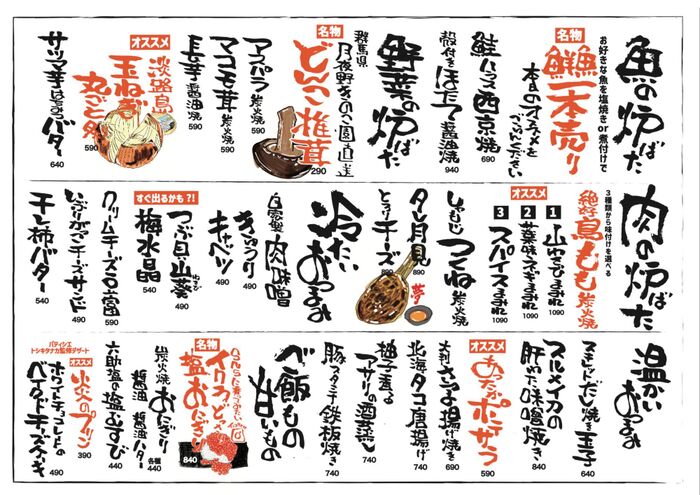 魚の炉ばた
お好きな魚を塩焼き or 煮付けで
名物
鮮魚一本売り
本日のオススメを
鮭ハラス西京焼
690
殻付きほたて醤油焼
940
野菜の炉ばた
群馬県
月夜野きのこ園直送
名物
どんこ椎茸
290
アスパラ炭火焼
590
マコモ茸炭火焼
590
長芋醤油焼
590
オススメ
淡路島
玉ねぎ
丸ごと
590
サツマ芋はちみつバター
640
肉の炉ばた
3種類から味付けを選べる
絶好鳥もも炭火焼
オススメ
1 山わさびまみれ
1090
2 葉味ネギまみれ
1090
3 スパイスまみれ
1090
つくね炭火焼
タレ月見
890
とろりチーズ
890
冷たいおつまみ
自家製肉味噌
きゅうり
キャベツ
490
つぶ貝山葵
490
すぐ出るかも?!
梅水晶
540
クリームチーズ
590
いぶりがっこチーズサンド
490
干し柿バター
540
温かいおつまみ
スモークだし焼き玉子
640
スルメイカの
肝みた味噌焼き
840
オススメ
あたたかポテサラ
590
さつま揚げ焼き
690
北海タコ唐揚げ
740
柚子香る
アサリの酒蒸し
740
豚スタミナ鉄板焼き
740
〆飯もの
甘いもの
名物
イクラどしゃ
塩おにぎり
840
炭火焼おにぎり
醤油 醤油バター
各種
440
六助塩の塩むすび
440
パティシエ
トシキタナカ監修デザート
オススメ
炎のプリン
390
ホワイトチョコレートの
ベイクドチーズケーキ
490